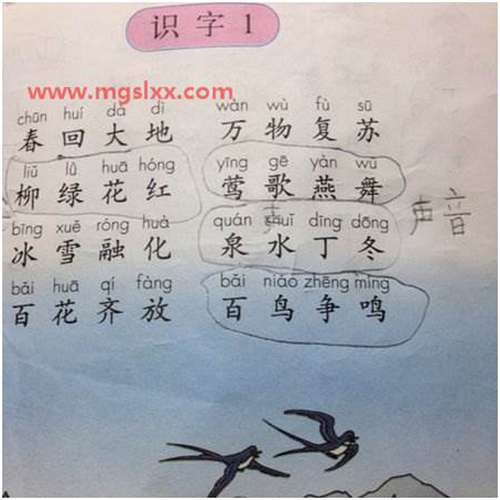 识字1
www.mgslxx.com
chūn huí dà dì wàn wù fù sū
春回大地 万物复苏
liǔ lǜ huā hóng yīng gē yàn wǔ
柳绿花红 莺歌燕舞
bīng xuě róng huà quán shuǐ dīng dōng
冰雪融化 泉水丁冬 声音
bǎi huā qí fàng bǎi niǎo zhēng míng
百花齐放 百鸟争鸣